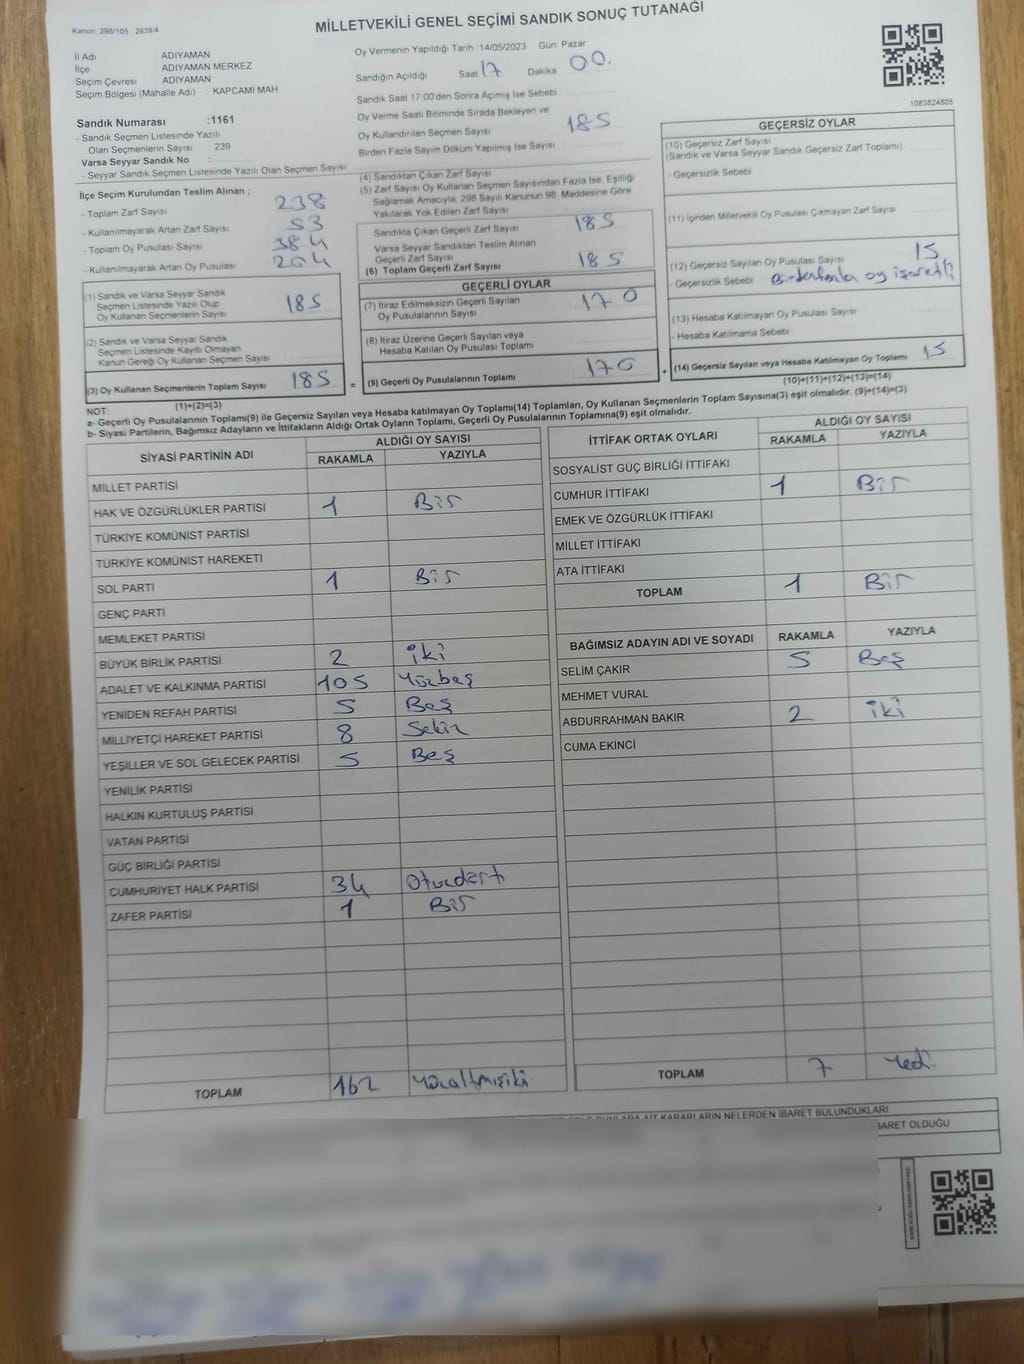 Kanun: 298/105 , 2839/4
MİLLETVEKİLİ GENEL SEÇİMİ SANDIK SONUÇ TUTANAĞI
İl Adı ADIYAMAN
İlçe ADIYAMAN MERKEZ
Seçim Çevresi ADIYAMAN
Seçim Bölgesi (Mahalle Adı) : KAPCAMİ MAH
Sandık Numarası :1161
- Sandık Seçmen Listesinde Yazılı
Olan Seçmenlerin Sayısı : 239
Varsa Seyyar Sandık No :
- Seyyar Sandık Seçmen Listesinde Yazılı Olan Seçmen Sayısı
Oy Vermenin Yapıldığı Tarih : 14/05/2023 Gün: Pazar
Sandığın Açıldığı Saat 17 Dakika 00.
Sandık Saat 17.00'den Sonra Açılmış İse Sebebi :
Oy Verme Saati Bitiminde Sırada Bekleyen ve
Oy Kullandırılan Seçmen Sayısı 185
Birden Fazla Sayım Döküm Yapılmış İse Sayısı :
1083824605
İlçe Seçim Kurulundan Teslim Alınan ;
- Toplam Zarf Sayısı 238
- Kullanılmayarak Artan Zarf Sayısı 53
- Toplam Oy Pusulası Sayısı 384
- Kullanılmayarak Artan Oy Pusulası 204
(1) Sandık ve Varsa Seyyar Sandık
Seçmen Listesinde Yazılı Olup
Oy Kullanan Seçmenlerin Sayısı 185
(2) Sandık ve Varsa Seyyar Sandık
Seçmen Listesinde Kayıtlı Olmayan
Kanun Gereği Oy Kullanan Seçmen Sayısı
(3) Oy Kullanan Seçmenlerin Toplam Sayısı 185 =
(1)+(2)=(3)
(4) Sandıktan Çıkan Zarf Sayısı
(5) Zarf Sayısı Oy Kullanan Seçmen Sayısından Fazla İse, Eşitliği
Sağlamak Amacıyla, 298 Sayılı Kanunun 98. Maddesine Göre
Yakılarak Yok Edilen Zarf Sayısı
Sandıkta Çıkan Geçerli Zarf Sayısı 185
Varsa Seyyar Sandıktan Teslim Alınan
Geçerli Zarf Sayısı
(6) Toplam Geçerli Zarf Sayısı 185
GEÇERLİ OYLAR
(7) İtiraz Edilmeksizin Geçerli Sayılan
Oy Pusulalarının Sayısı 170
(8) İtiraz Üzerine Geçerli Sayılan veya
Hesaba Katılan Oy Pusulası Toplamı
(9) Geçerli Oy Pusulalarının Toplamı 170 +
GEÇERSİZ OYLAR
(10) Geçersiz Zarf Sayısı
(Sandık ve Varsa Seyyar Sandık Geçersiz Zarf Toplamı)
- Geçersizlik Sebebi :
(11) İçinden Milletvekili Oy Pusulası Çıkmayan Zarf Sayısı
(12) Geçersiz Sayılan Oy Pusulası Sayısı 15
- Geçersizlik Sebebi oy işaretli
(13) Hesaba Katılmayan Oy Pusulası Sayısı
- Hesaba Katılmama Sebebi :
(14) Geçersiz Sayılan veya Hesaba Katılmayan Oy Toplamı 15
(10)+(11)+(12)+(13)=(14)
NOT:
a- Geçerli Oy Pusulaları Toplamı(9) ile Geçersiz Sayılan veya Hesaba katılmayan Oy Toplamı(14) Toplamları, Oy Kullanan Seçmenlerin Toplam Sayısına(3) eşit olmalıdır. (9)+(14)=(3)
b- Siyasi Partilerin, Bağımsız Adayların ve İttifakların Aldığı Ortak Oyların Toplamı, Geçerli Oy Pusulalarının Toplamına(9) eşit olmalıdır.
SİYASİ PARTİNİN ADI ALDIĞI OY SAYISI
RAKAMLA YAZIYLA
MİLLET PARTİSİ
HAK VE ÖZGÜRLÜKLER PARTİSİ 1 Bir
TÜRKİYE KOMÜNİST PARTİSİ
TÜRKİYE KOMÜNİST HAREKETİ
SOL PARTİ 1 Bir
GENÇ PARTİ
MEMLEKET PARTİSİ
BÜYÜK BİRLİK PARTİSİ 2 iki
ADALET VE KALKINMA PARTİSİ 105 Yüzbeş
YENİDEN REFAH PARTİSİ 5 Beş
MİLLİYETÇİ HAREKET PARTİSİ 8 Sekiz
YEŞİLLER VE SOL GELECEK PARTİSİ 5 Beş
YENİLİK PARTİSİ
HALKIN KURTULUŞ PARTİSİ
VATAN PARTİSİ
GÜÇ BİRLİĞİ PARTİSİ
CUMHURİYET HALK PARTİSİ 34 Otuzdört
ZAFER PARTİSİ 1 Bir
TOPLAM 162 Yüzaltmışiki
İTTİFAK ORTAK OYLARI ALDIĞI OY SAYISI
RAKAMLA YAZIYLA
SOSYALİST GÜÇ BİRLİĞİ İTTİFAKI
CUMHUR İTTİFAKI 1 Bir
EMEK VE ÖZGÜRLÜK İTTİFAKI
MİLLET İTTİFAKI
ATA İTTİFAKI
TOPLAM 1 Bir
BAĞIMSIZ ADAYIN ADI VE SOYADI RAKAMLA YAZIYLA
SELİM ÇAKIR 5 Beş
MEHMET VURAL
ABDURRAHMAN BAKIR 2 iki
CUMA EKİNCİ
TOPLAM 7 Yedi
KARARLARIN NELERDEN İBARET BULUNDUKLARI
İBARET OLDUĞU